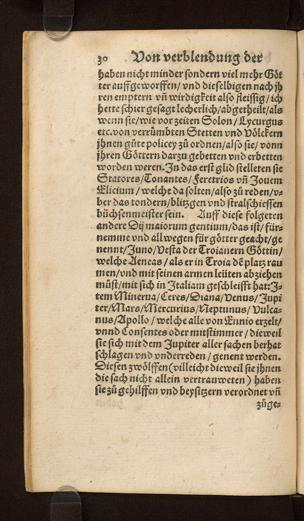 30 Von verblendung der
haben nicht minder sondern viel mehr Göt
ter auffgeworffen/ vnd dieselbigen nach jh
ren emptern vñ wirdigkeit also fleissig/ ich
hette schier gesagt lecherlich/ abgetheilt/ als
wenn sie/ wie vor zeiten Solon/ Lycurgus
etc. von verrümbten Stetten vnd Völckern
jhnen güte policey zů ordnen/ also sie/ vonn
jhren Göttern darzu gebetten vnd erbetten
worden weren. In das erst glid stelleten sie
Statores/ Tonantes/ Feretrios vñ Jouem
Elicium/ welche da solten/ also zů reden/ v-
ber das tondern/ blitzgen vnd stralschiessen
büchsenmeister sein. Auff diese folgeten
andere Dij maiorum gentium/ das ist/ für-
nemme vnd allwegen für götter geacht/ ge
nennt/ Juno/ Vesta der Troianern Göttin/
welche Aeneas/ als er in Troia dē platz rau
men/ vnd mit seinen armen leüten abziehen
můst/ mit sich in Italiam geschleifft hat: J-
tem Minerua/ Ceres/ Diana/ Venus/ Jupi
ter/ Mars/ Mercurius/ Neptunus/ Vulca-
nus/ Apollo/ welche alle von Ennio erzelt/
vnnd Consentes oder mutstimmer/ dieweil
sie sich mit dem Jupiter aller sachen berhat
schlagen vnd vnderreden/ genent werden.
Diesen zwölffen (villeicht dieweil sie jhnen
die sach nicht allein vertrauweten) haben
sie zů gehilffen vnd beysitzern verordnet vñ
zůge-